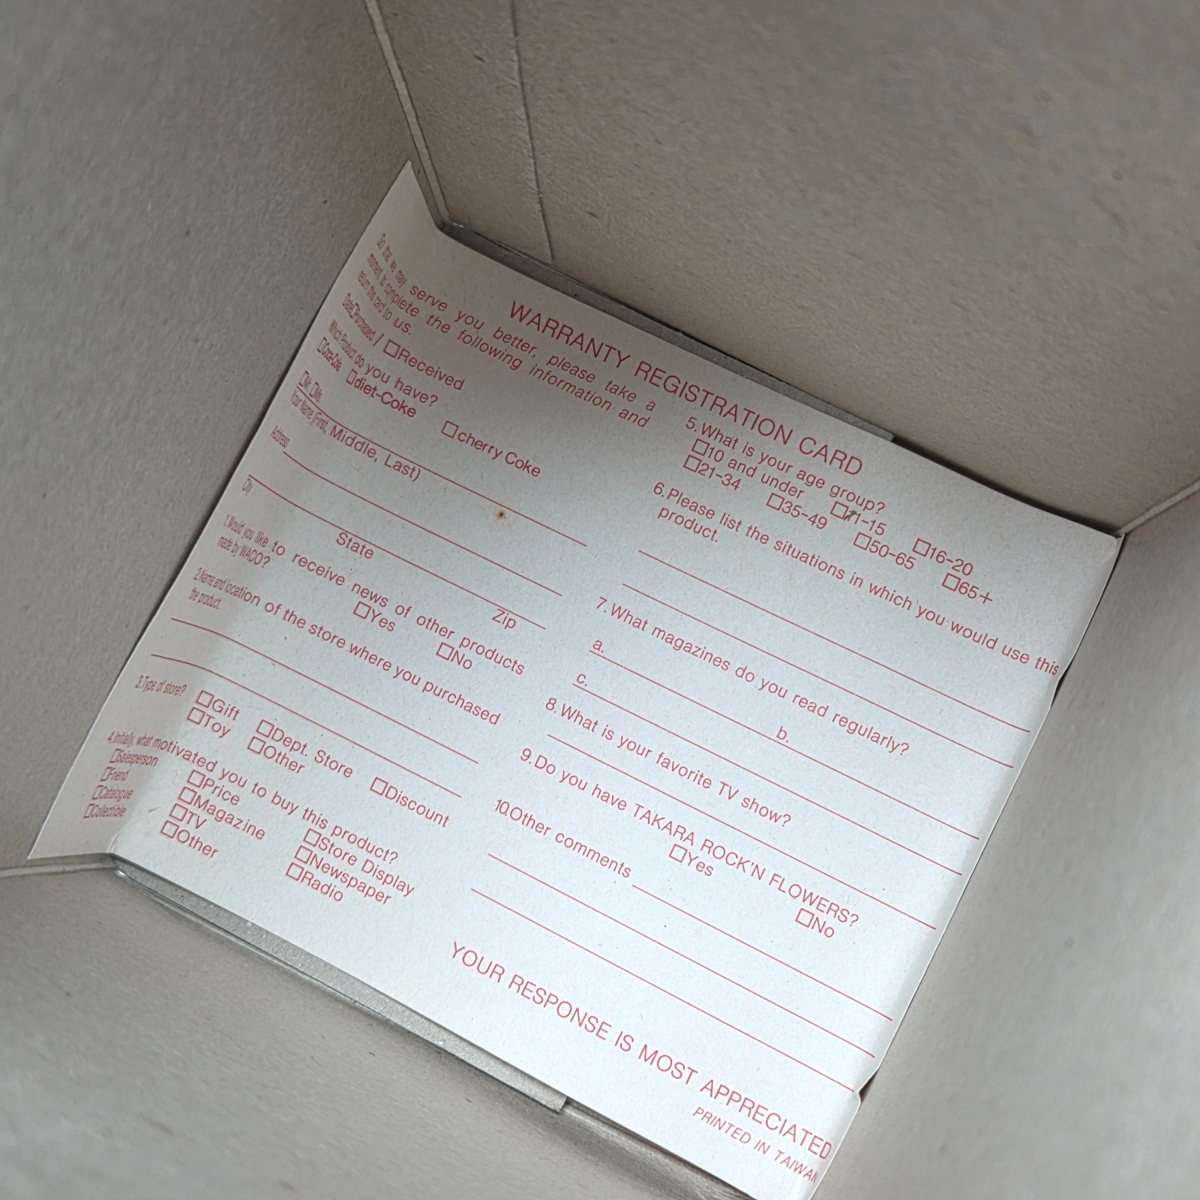 WARRANTY REGISTRATION CARD
So that we may serve you better, please take a
moment to complete the following information and
return this card to us.
Date□Purchased / □Received
Which Product do you have?
□Coca-Cola □diet-Coke □cherry Coke
□Mr. □Ms.
Your Name (First, Middle, Last)
Address
City State Zip
1.Would you like to receive news of other products
made by WACO? □Yes □No
2.Name and location of the store where you purchased
the product.
3.Type of store? □Gift □Dept. Store □Discount
□Toy □Other
4.Initially, what motivated you to buy this product?
□Salesperson □Price □Store Display
□Friend □Magazine □Newspaper
□Catalogue □TV □Radio
□Collectible □Other
5.What is your age group?
□10 and under □11-15 □16-20
□21-34 □35-49 □50-65 □65+
6.Please list the situations in which you would use this
product.
7.What magazines do you read regularly?
a. b.
c.
8.What is your favorite TV show?
9.Do you have TAKARA ROCK'N FLOWERS?
□Yes □No
10.Other comments
YOUR RESPONSE IS MOST APPRECIATED
PRINTED IN TAIWAN